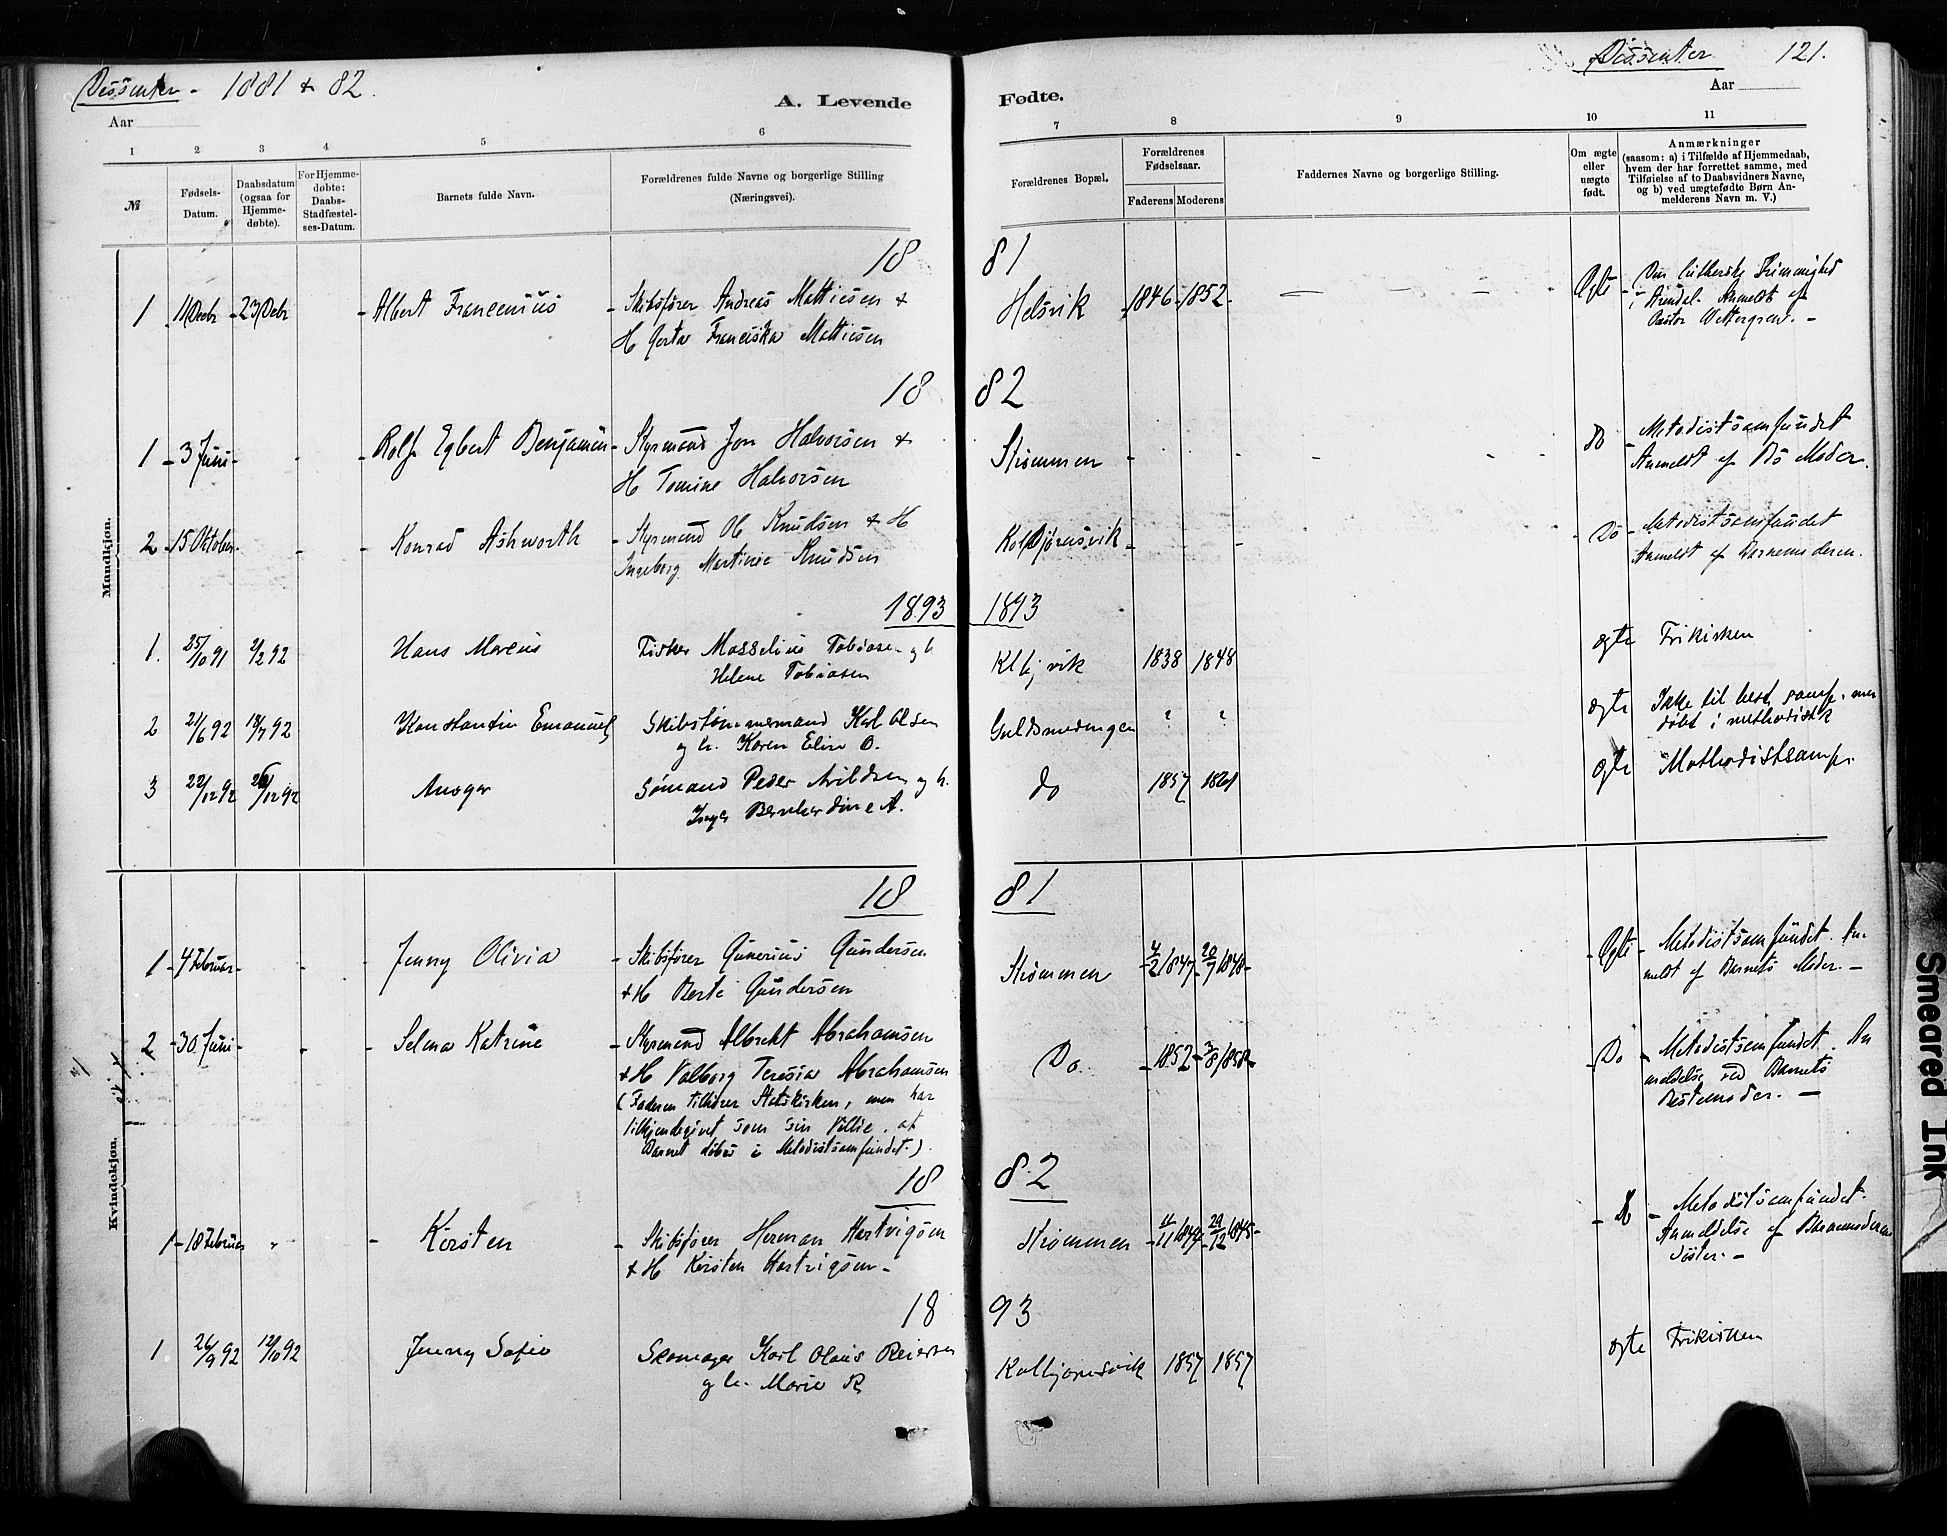 Dissenter - 1881 & 82.
Dissenter 121.
A. Levende Fødte.
Aar
Aar
1 2 3 4 5 6 7 8 9 10 11
№
Fødsels-Datum.
Daabsdatum (ogsaa for Hjemmedøbte).
For Hjemmedøbte: Daabs-Stadfæstelses-Datum.
Barnets fulde Navn.
Forældrenes fulde Navne og borgerlige Stilling (Næringsvei).
Forældrenes Bopæl.
Forældrenes Fødselsaar.
Faderens Moderens
Faddernes Navne og borgerlige Stilling.
Om ægte eller uægte født.
Anmærkninger
(saasom: a) i Tilfælde af Hjemmedaab, hvem der har forrettet samme, med Tilføielse af to Daabsvidners Navne, og b) ved uægtefødte Børn Anmelderens Navn m. V.)
Mandkjøn.
18 81
1 11 Decbr - 23 Decbr - Albert Francenius - Skibsfører Andreas Mattiesen & Helsvik - 1846 - 1852 - Ægte - Den lutherske Frimenighed
H Franciska Mattiesen i Arendal. Anmeldt af
Pastor Wettergren. -
18 82
1 - 3 Juni - Rolf Egbert Benjamin - Styrmand Jon Halvorsen & Strømmen - Do - Metodistsamfundet
H Tomine Halvorsen Anmeldt af Bs Moder.
2 - 15 Oktober - Konrad Ashworth - Styrmand Ol Knudsen & H Kolbjørnsvik - Do - Metodistsamfundet
Ingeborg Martinie Knudsen Anmeldt af Barnemoderen.
1893 1893
1. 25/10 91 2/2 92 Hans Marcus Fisker Masselius Tobiasen og h. Klbj vik 1838 1848 ægte Frikirken
Helene Tobiasen
2 21/6 92 18/7 92 Konstantin Emanuel Skibstømmermand Karl Olsen Guldsmedengen ? ? ægte Ikke til best. samf. men
og h. Karen Elin O. døbt i methodistk
3 22/12 92 26/12 92 Ansgar Sømand Peder Arildsen og h. do 1857 1861 ægte Methodistsamf.
Inger Bernhardine A.
Kvindekjøn.
18 81
1 - 4 Februar - Jenny Olivia - Skibsfører Gunerius Gundersen Strømmen 4/2 1847 - 20/7 1848 - Ægte - Metodistsamfundet. An-
& H Berte Gundersen meldt af Barnets Moder. -
2 - 30 Juni - Selma Katrine - Styrmand Albrekt Abrahamsen Do. - 1852 - 3/8 1858 - Do - Metodistsamfundet. An
& H Valborg Teresia Abrahamsen meldelse ved Barnets
(Faderen tilhører Statskirken, men har Bestemoder. -
tilkjendegivet som sin Villie, at
Barnet døbes i Metodistsamfundet.)
18 82
1 - 18 Februar - Kirsten - Skibsfører Herman Hartvigsen Strømmen - 11/11 1844 - 29/12 1845 - Do - Metodistsamfundet.
& H Kirsten Hartvigsen - Anmeldelse af Barnemoderens
Søster. -
18 93
1 26/9 92 12/10 92 Jenny Sofie Skomager Karl Olaus Reiersen Kolbjørnsvik 1857 1857 ægte Frikirken
og h. Marie R
Smeared Ink